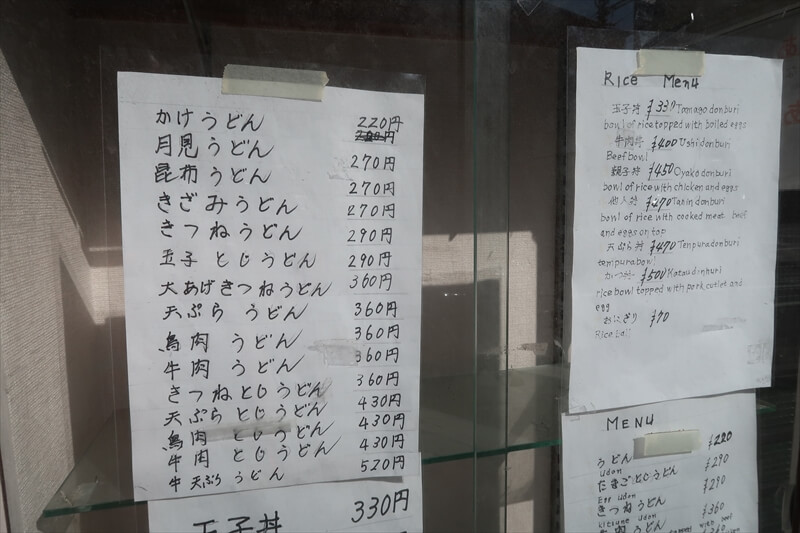 かけうどん 220円
月見うどん 270円
昆布うどん 270円
きざみうどん 270円
きつねうどん 290円
玉子とじうどん 290円
大あげきつねうどん 360円
天ぷらうどん 360円
鳥肉うどん 360円
牛肉うどん 360円
きつねとじうどん 360円
天ぷらとじうどん 430円
鳥肉とじうどん 430円
牛肉とじうどん 430円
牛天ぷらうどん 520円
玉子丼 330円
Rice Menu
玉子丼 ¥330 Tamagodonburi
bowl of rice topped with boiled eggs
牛肉丼 ¥400 Ushidonburi
Beef bowl
親子丼 ¥450 Oyakodonburi
bowl of rice with chicken and eggs
他人丼 ¥270 Tanindonburi
bowl of rice with cooked meat beef
and eggs on top
天ぷら丼 ¥470 Tenpuradonburi
tempurabowl
かつ丼 ¥500 Katsudinburi
rice bowl topped with pork cutlet and
egg
おにぎり ¥70
Rice
MENU
うどん ¥220
udon
たまごとじうどん ¥290
Egg udon
きつねうどん ¥290
kitsune udon
肉うどん ¥360